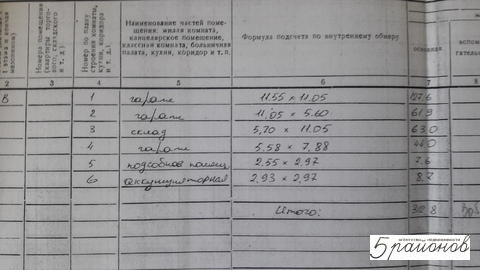 Наименование частей поме-
щения: жилая комната,
канцелярское помещение,
классная комната, больничная
палата, кухня, коридор и т. п.
Формула подсчета по внутреннему обмеру
основная
Номера помещения
(квартиры торго-
вого, складского
и т. д.)
Номер по плану
строения комнаты,
кухни, коридора
и т. д.
2 3 4 5 6 7 8
В 1 гараж 11.55 × 11.05 127.6
2 гараж 11.05 × 5.60 61.9
3 склад 5,70 × 11.05 63.0
4 гараж 5.58 × 7,88 44.0
5 подсобное помещ. 2.55 × 2,97 7.6
6 аккумуляторная 2,93 × 2,97 8.7
Итого: 312.8
агентство недвижимости
5 районов